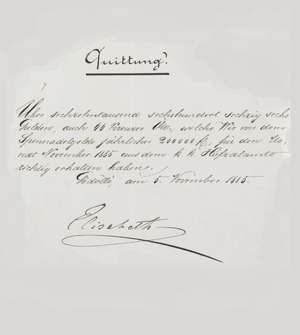 Quittung.
Über sechzehntausend sechshundert sechzig sechs
Gulden, auch 66 Kreuzer Ö.W., welche Wir von dem
Spennadelgelde jährlicher 200000 fl. für den Mo-
nat November 1885 aus dem k. k. Hofzahlamte
richtig erhalten haben.
Gödöllö, am 5. November 1885.
Elisabeth